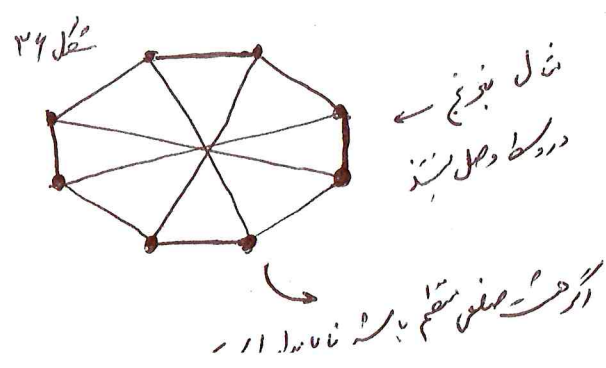 شکل ۳۶
مثال بغرنج
در وسط وصل نیستند
اگر هشت ضلعی منتظم باشد ناپایدار است